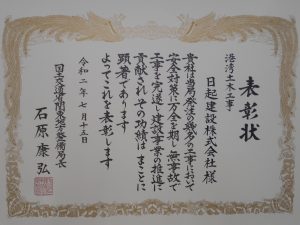 表彰状
港湾土木工事
日起建設株式会社様
貴社は当局発注の幾多の工事において
安全対策に万全を期し無事故で
工事を完遂し建設事業の推進に
貢献されその功績はまことに
顕著であります
よってこれを表彰します
令和二年七月十五日
国土交通省関東地方整備局長
石原康弘